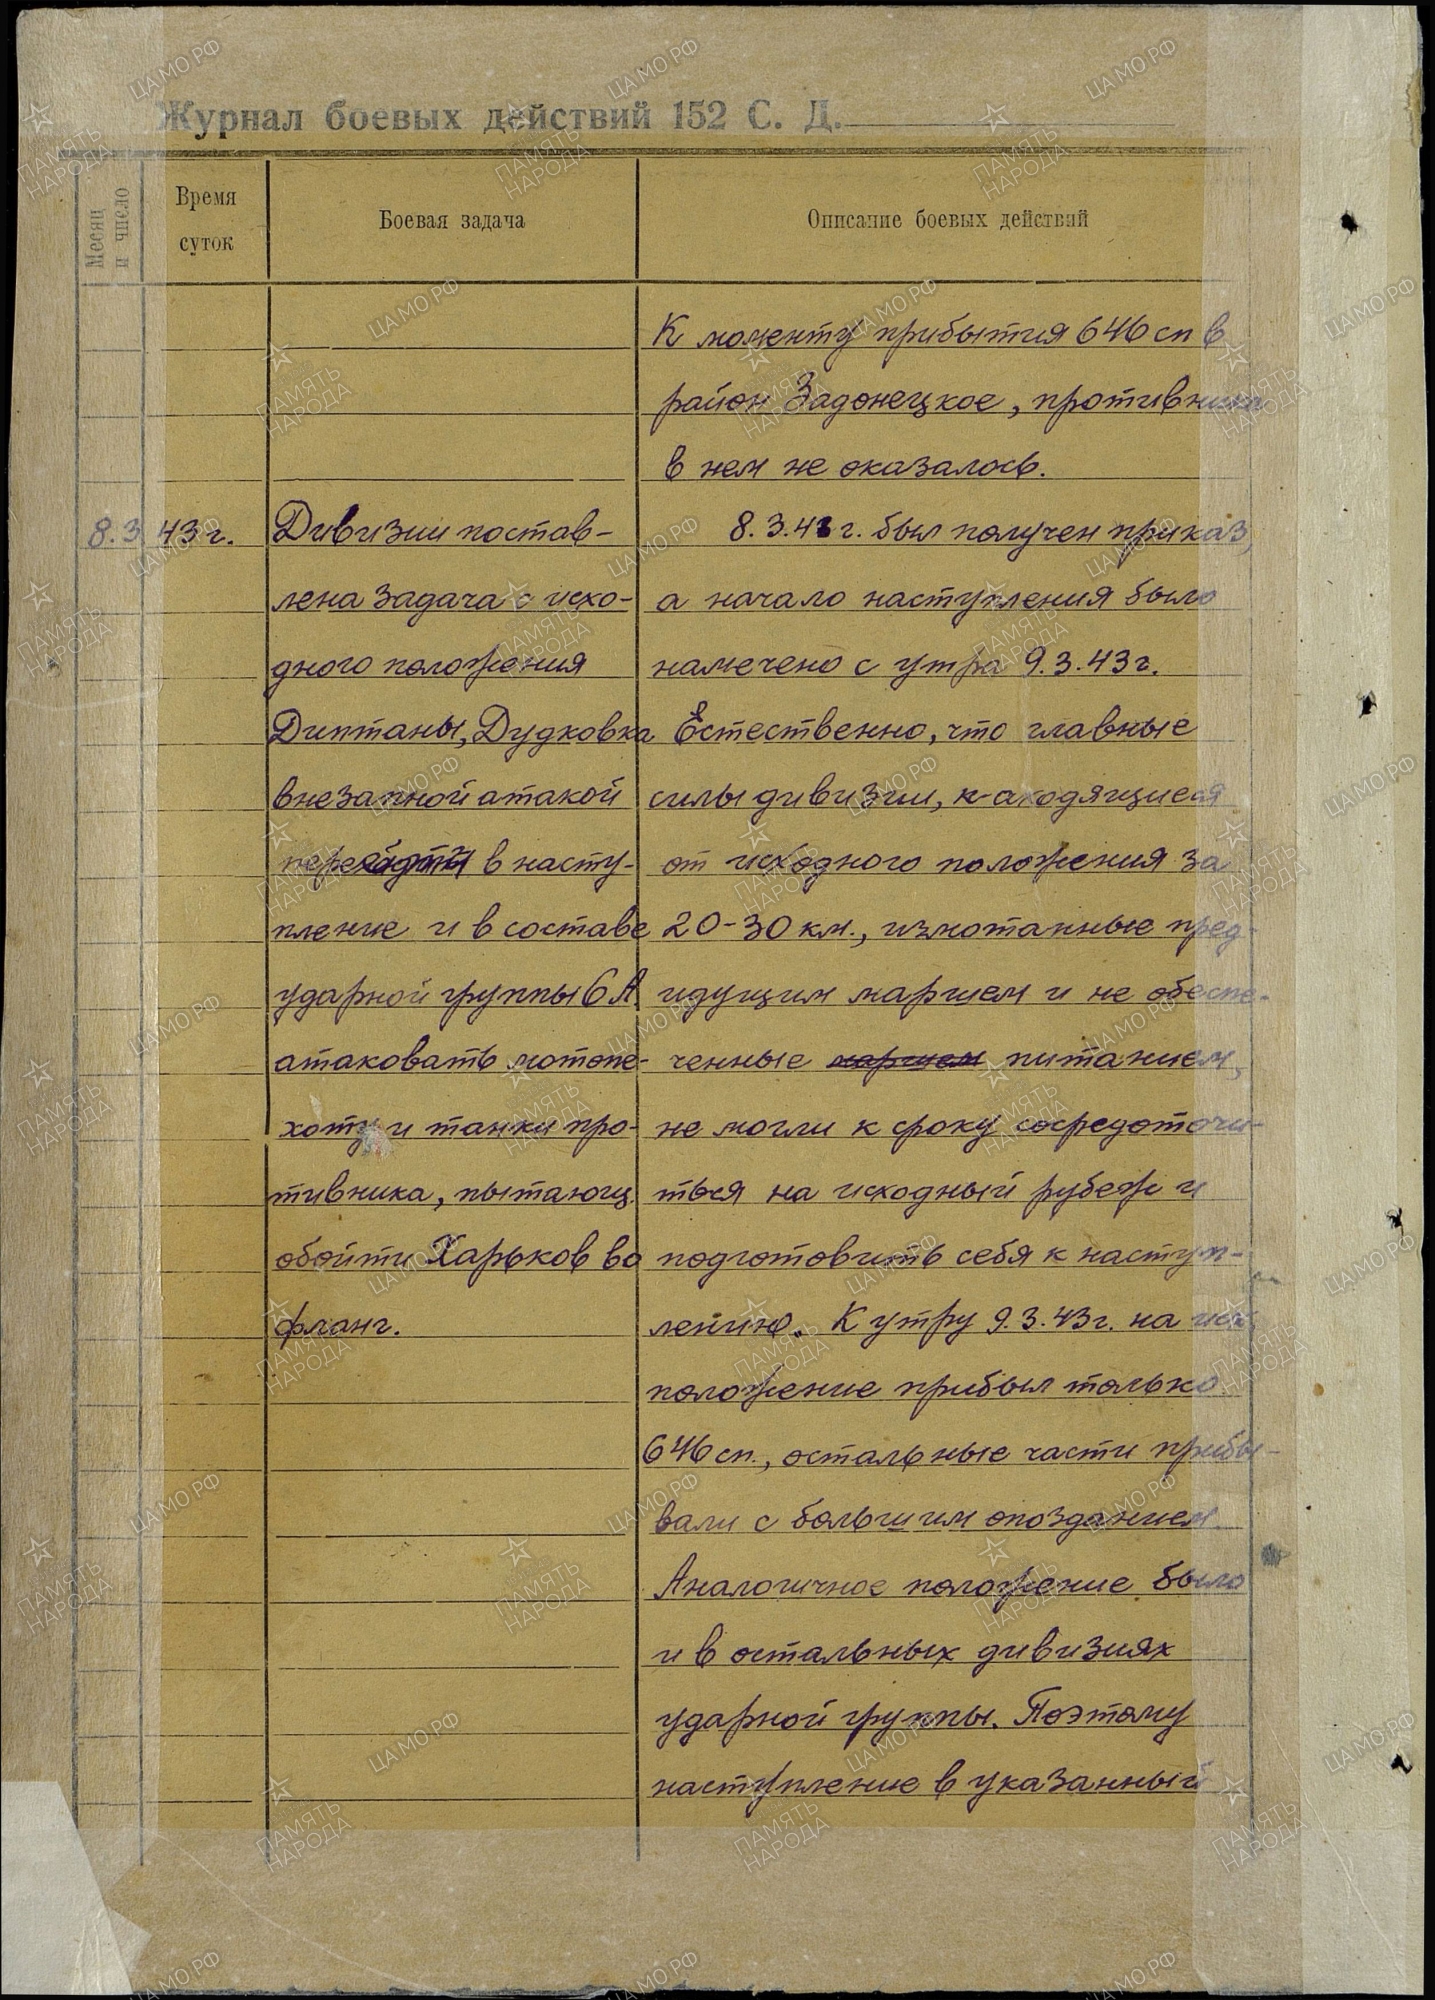 Журнал боевых действий 152 С. Д.
Месяц и число
Время суток
Боевая задача
Описание боевых действий
К моменту прибытия 646 сп в
район Задонецкое, противника
в нем не оказалось.
8.3.43 г.
Дивизии постав-
лена задача с исхо-
дного положения
Диптаны, Дудковка
внезапной атакой
перейти в насту-
пление и в составе
ударной группы 6 А.
атаковать мотопе-
хоту и танки про-
тивника, пытающ.
обойти Харьков во
фланг.
8.3.43 г. был получен приказ,
а начало наступления было
намечено с утра 9.3.43 г.
Естественно, что главные
силы дивизии, находящиеся
от исходного положения за
20-30 км., измотанные пред-
идущим маршем и не обеспе-
ченные маршем питанием,
не могли к сроку сосредоточи-
ться на исходный рубеж и
подготовить себя к наступ-
лению. К утру 9.3.43 г. на исх.
положение прибыл только
646 сп., остальные части прибы-
вали с большим опозданием
Аналогичное положение было
и в остальных дивизиях
ударной группы. Поэтому
наступление в указанный
ЦАМО РФ
ПАМЯТЬ
НАРОДА